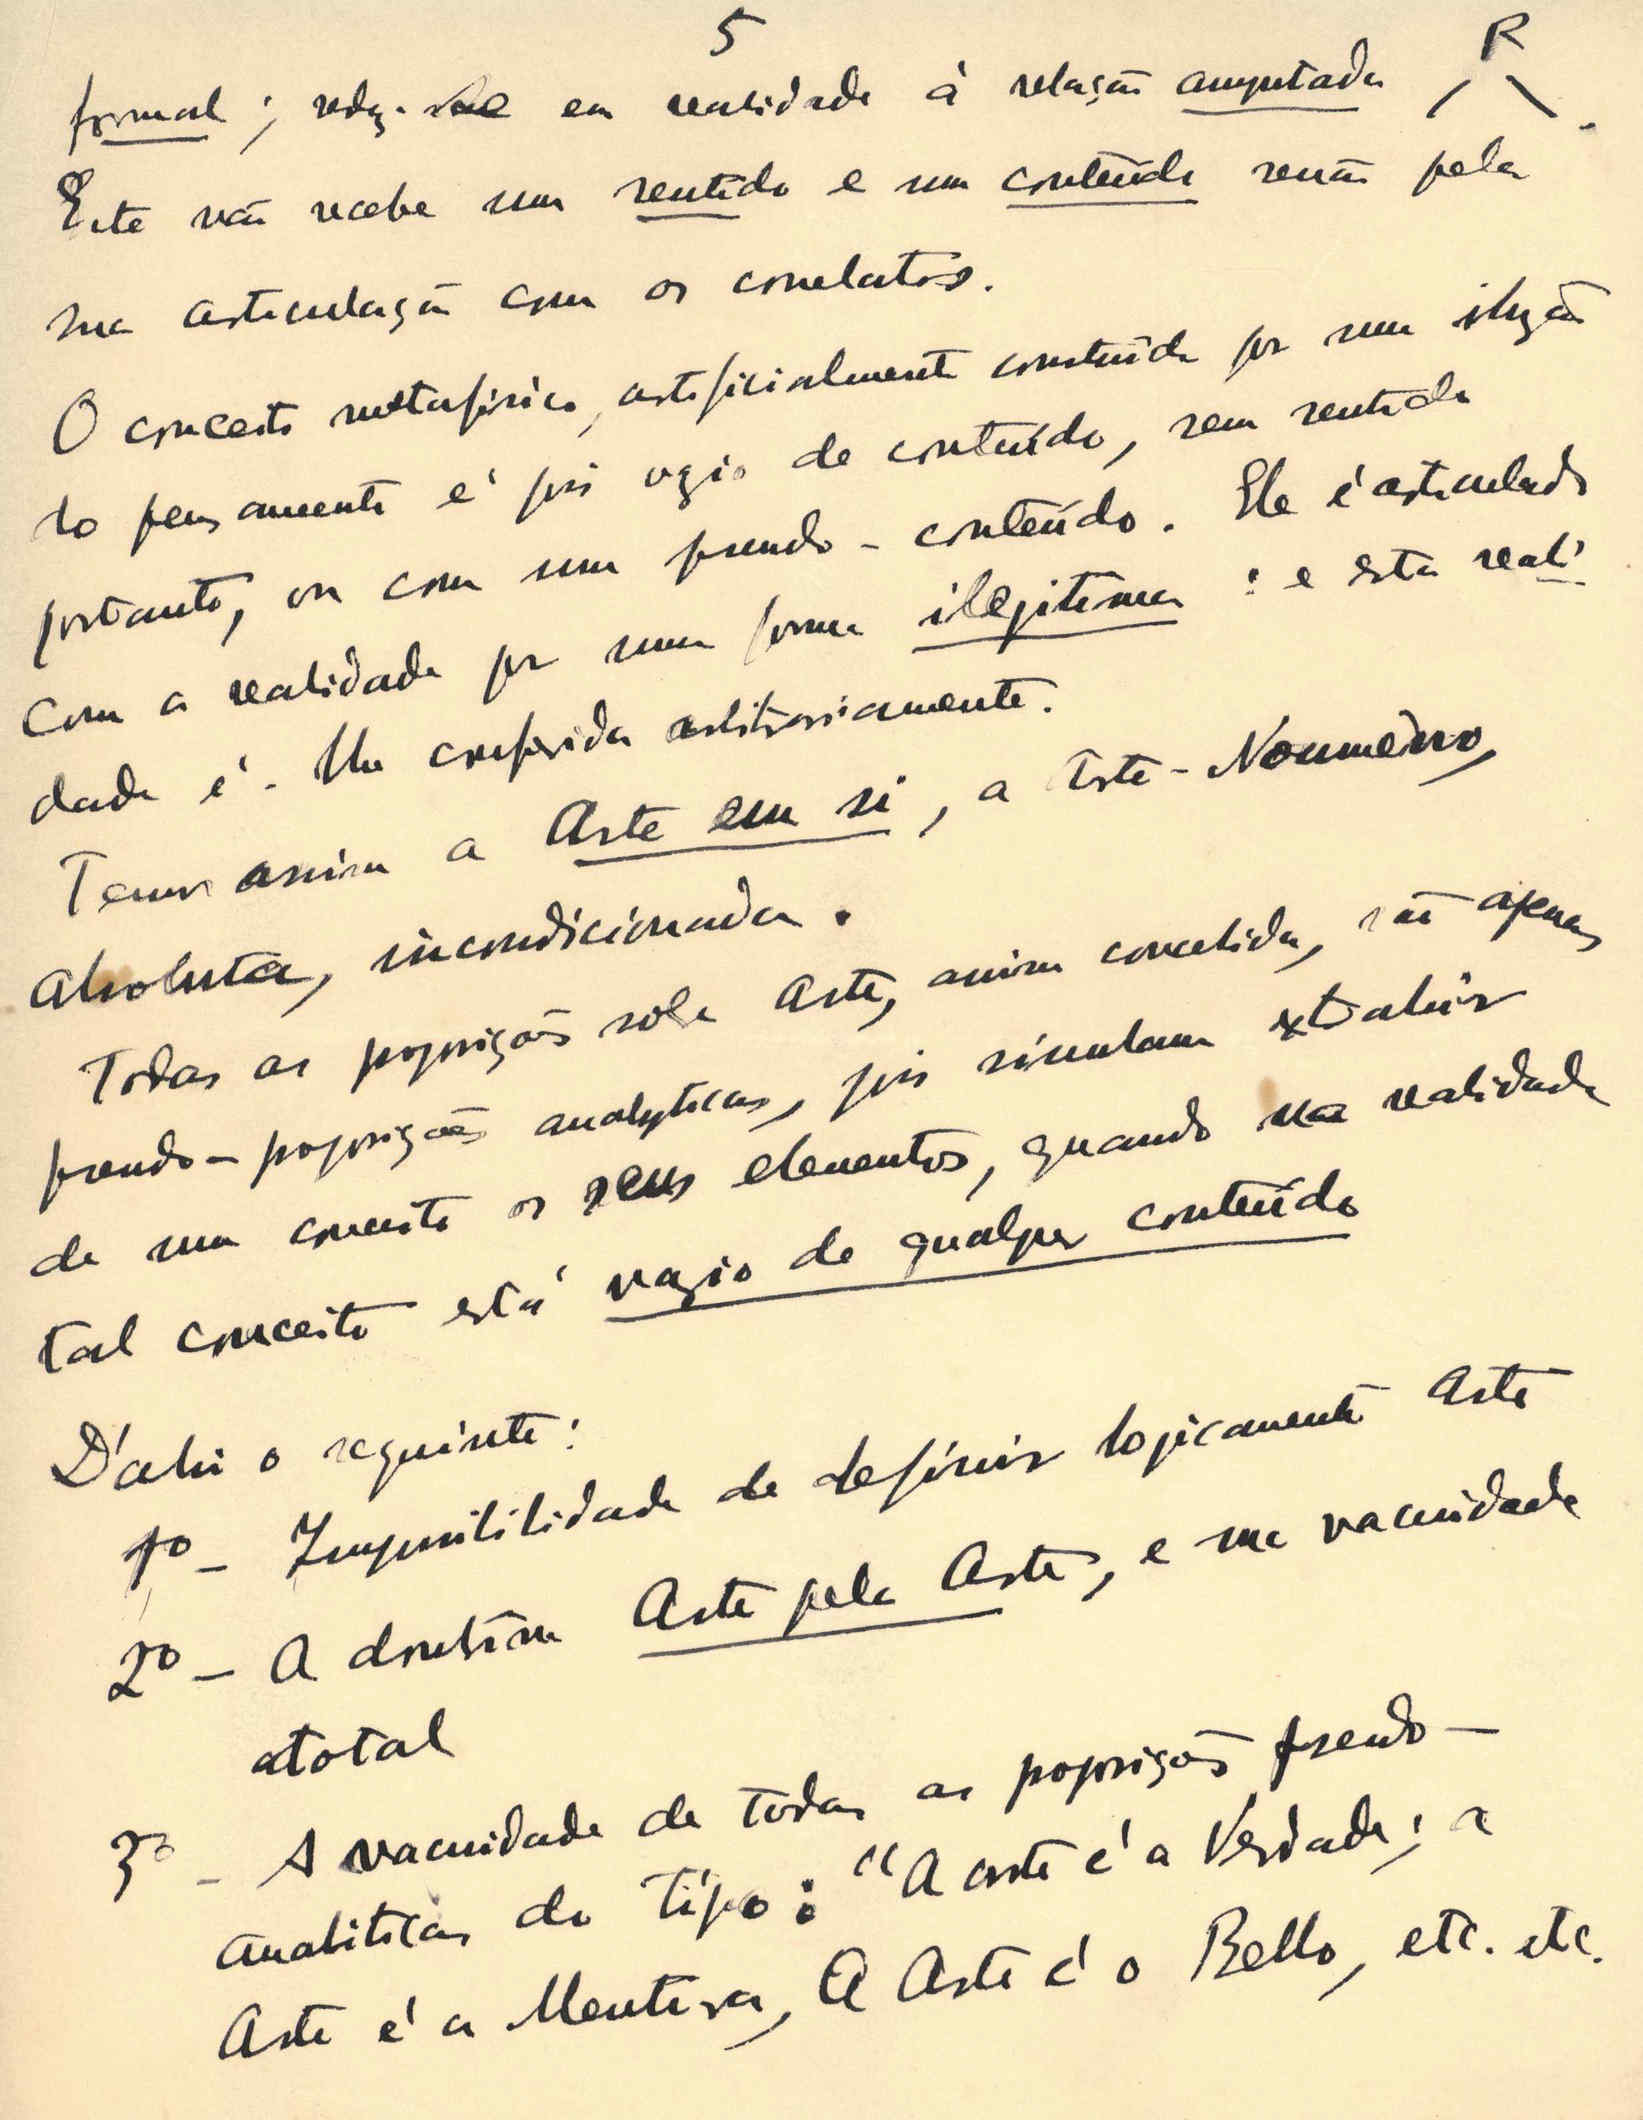 5
formal; reduz-se em realidade á relação amputada / R \.
Este não recebe um sentido e um conteúdo senão pela
sua articulação com os correlatos.
O conceito metafísico, artificialmente construído por uma ilusão
do pensamento é pois vazio de conteúdo, sem sentido
portanto, ou com um pseudo-conteúdo. Ele é articulado
com a realidade por uma forma ilegitima: e esta reali
dade é-lhe conferida arbitrariamente.
Temos assim a Arte em si, a Arte-Noumeno,
absoluta, incondicionada.
Todas as proposições sobre Arte, assim concebida, são apenas
pseudo-proposições analyticas, pois simulam extrahir
de um conceito os seus elementos, quando na realidade
tal conceito está vazio de qualquer conteúdo
D'ahi o seguinte:
1º - Impossibilidade de definir logicamente Arte
2º - A doutrina Arte pela Arte, e sua vacuidade
total
3º - A vacuidade de todas as proposições pseudo-
analiticas do tipo: "A arte é a Verdade; a
Arte é a Mentira, A Arte é o Bello, etc. etc.